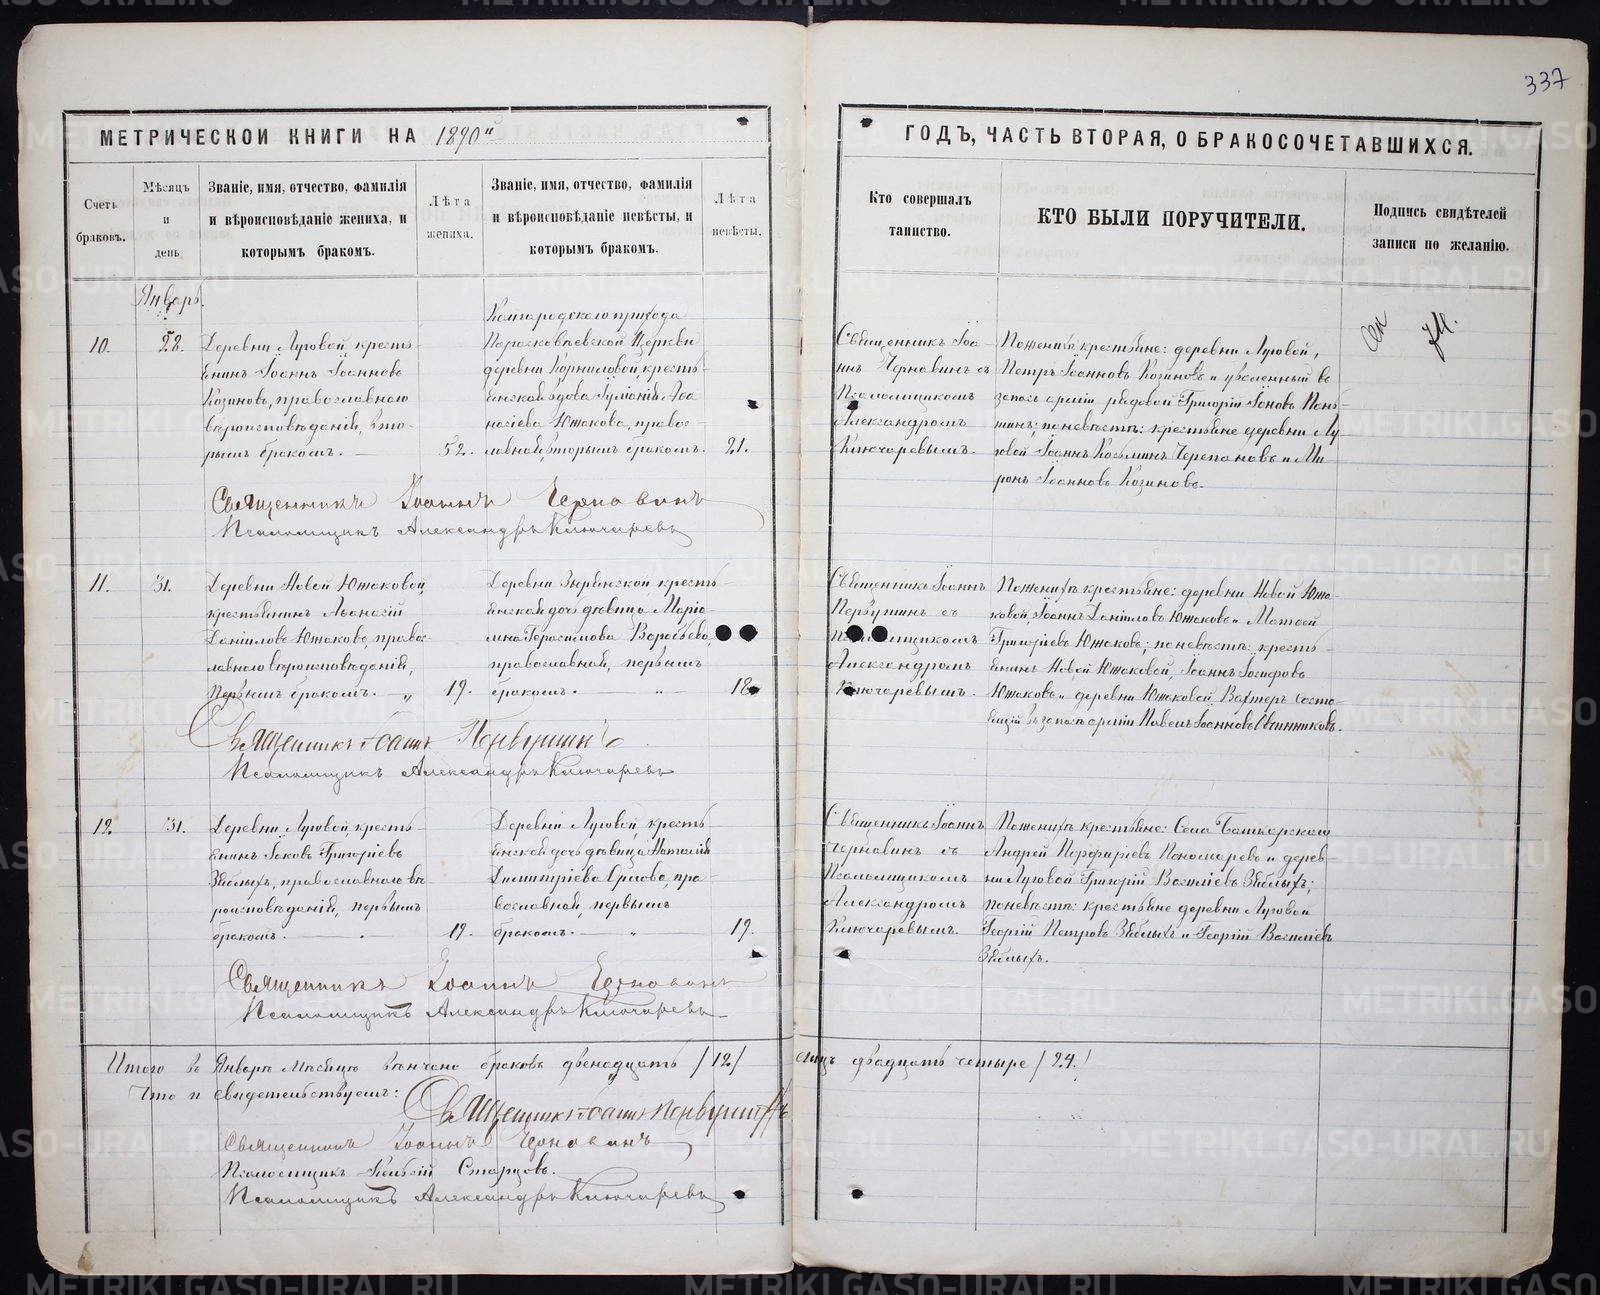 337
МЕТРИЧЕСКОЙ КНИГИ НА 1890й
ГОДЪ, ЧАСТЬ ВТОРАЯ, О БРАКОСОЧЕТАВШИХСЯ.
Счетъ браковъ.
Мѣсяцъ и день
Званіе, имя, отчество, фамилія
и вѣроисповѣданіе жениха, и
которымъ бракомъ.
Лѣта жениха.
Званіе, имя, отчество, фамилія
и вѣроисповѣданіе невѣсты, и
которымъ бракомъ.
Лѣта невѣсты.
Кто совершалъ
таинство.
КТО БЫЛИ ПОРУЧИТЕЛИ.
Подпись свидѣтелей
записи по желанію.
Январь.
10.
28.
Деревни Луговой, кресть-
янинъ Іоаннъ Іоанновъ
Козиновъ, православнаго
вѣроисповѣданія, вто-
рымъ бракомъ.
52.
прихода
Парасковіевской Церкви
деревни Корниловой, кресть-
янская вдова Іуліанія Аѳа-
насіева Южакова, правос-
лавная, вторымъ бракомъ.
21.
Священникъ Іоа-
ннъ Черновинъ съ
Псаломщикомъ
Александромъ
Ключаревымъ.
По женихѣ крестьяне: деревни Луговой,
Петръ Іоанновъ Козиновъ и уволенный въ
запасъ арміи рядовой Григорій Іоновъ
по невѣстѣ: крестьяне деревни Лу-
говой Іоаннъ Козьминъ Черепановъ и Ми-
ронъ Іоанновъ Козиновъ.
Священникъ Іоаннъ Черновинъ
Псаломщикъ Александръ Ключаревъ
11.
31.
Деревни Новой Южаковой,
крестьянинъ Аѳанасій
Даніиловъ Южаковъ, правос-
лавнаго вѣроисповѣданія,
первымъ бракомъ. „
19.
Деревни Зырянской, кресть-
янская дочь дѣвица Маріа-
мна Герасимова Воробьева,
православная, первымъ
бракомъ. „
18.
Священникъ Іоаннъ
Первушинъ съ
псаломщикомъ
Александромъ
Ключаревымъ.
По женихѣ крестьяне: деревни Новой Южа-
ковой, Іоаннъ Даніиловъ Южаковъ и Матвей
Григоріевъ Южаковъ; по невѣстѣ: кресть-
янинъ Новой Южаковой, Іоаннъ Іосифовъ
Южаковъ и деревни Южаковой, Вахтеръ состо-
ящій въ запасѣ арміи Павелъ Іоанновъ Овчинниковъ.
Священникъ Іоаннъ Первушинъ
Псаломщикъ Александръ Ключаревъ
12.
31.
Деревни Луговой, кресть-
янинъ Іаковъ Григоріевъ
Зяблыхъ, православнаго вѣ-
роисповѣданія, первымъ
бракомъ.
19.
Деревни Луговой, кресть-
янская дочь дѣвица Наталія
Димитріева Орлова, пра-
вославная, первымъ
бракомъ. „
19.
Священникъ Іоаннъ
Черновинъ съ
Псаломщикомъ
Александромъ
Ключаревымъ.
По женихѣ крестьяне: Села
Андрей Порфиріевъ Пономаревъ и дерев-
ни Луговой Григорій Василіевъ Зяблыхъ;
по невѣстѣ: крестьяне деревни Луговой
Георгій Петровъ Зяблыхъ и Георгій Василіевъ
Зяблыхъ.
Священникъ Іоаннъ Черновинъ
Псаломщикъ Александръ Ключаревъ
Итого въ Январѣ мѣсяцѣ вѣнчано браковъ двенадцать /12/ лицъ двадцать четыре /24./
Что и свидетельствуемъ:
Священникъ Іоаннъ Первушинъ
Священникъ Іоаннъ Черновинъ
Псаломщикъ Старцовъ.
Псаломщикъ Александръ Ключаревъ
METRIKI.GASO-URAL.RU